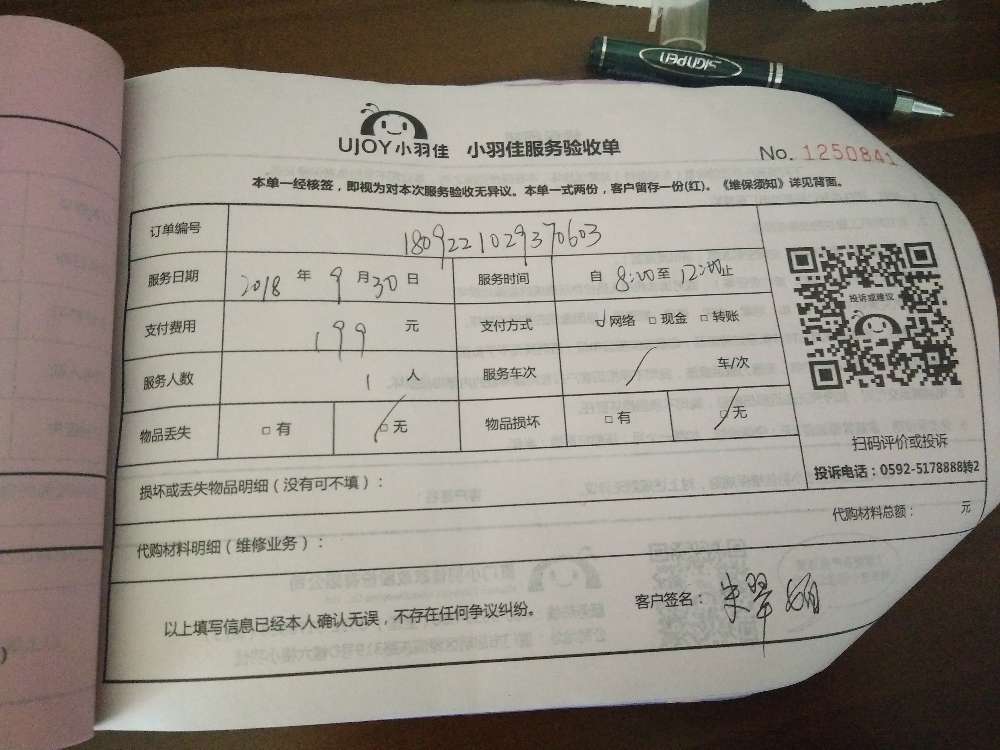 SIGNPEN
UJOY小羽佳 小羽佳服务验收单
No. 1250841
本单一经核签，即视为对本次服务验收无异议。本单一式两份，客户留存一份(红)。《维保须知》详见背面。
订单编号 180922102937 0603
服务日期 2018 年 9 月 30 日 服务时间 自 8:00 至 12:00 止
支付费用 199 元 支付方式 ☑网络 □现金 □转账
服务人数 1 人 服务车次 / 车/次
物品丢失 □有 ☑无 物品损坏 □有 ☑无
投诉或建议
扫码评价或投诉
投诉电话：0592-5178888转2
损坏或丢失物品明细（没有可不填）：
代购材料总额： 元
代购材料明细（维修业务）：
以上填写信息已经本人确认无误，不存在任何争议纠纷。
客户签名：朱翠